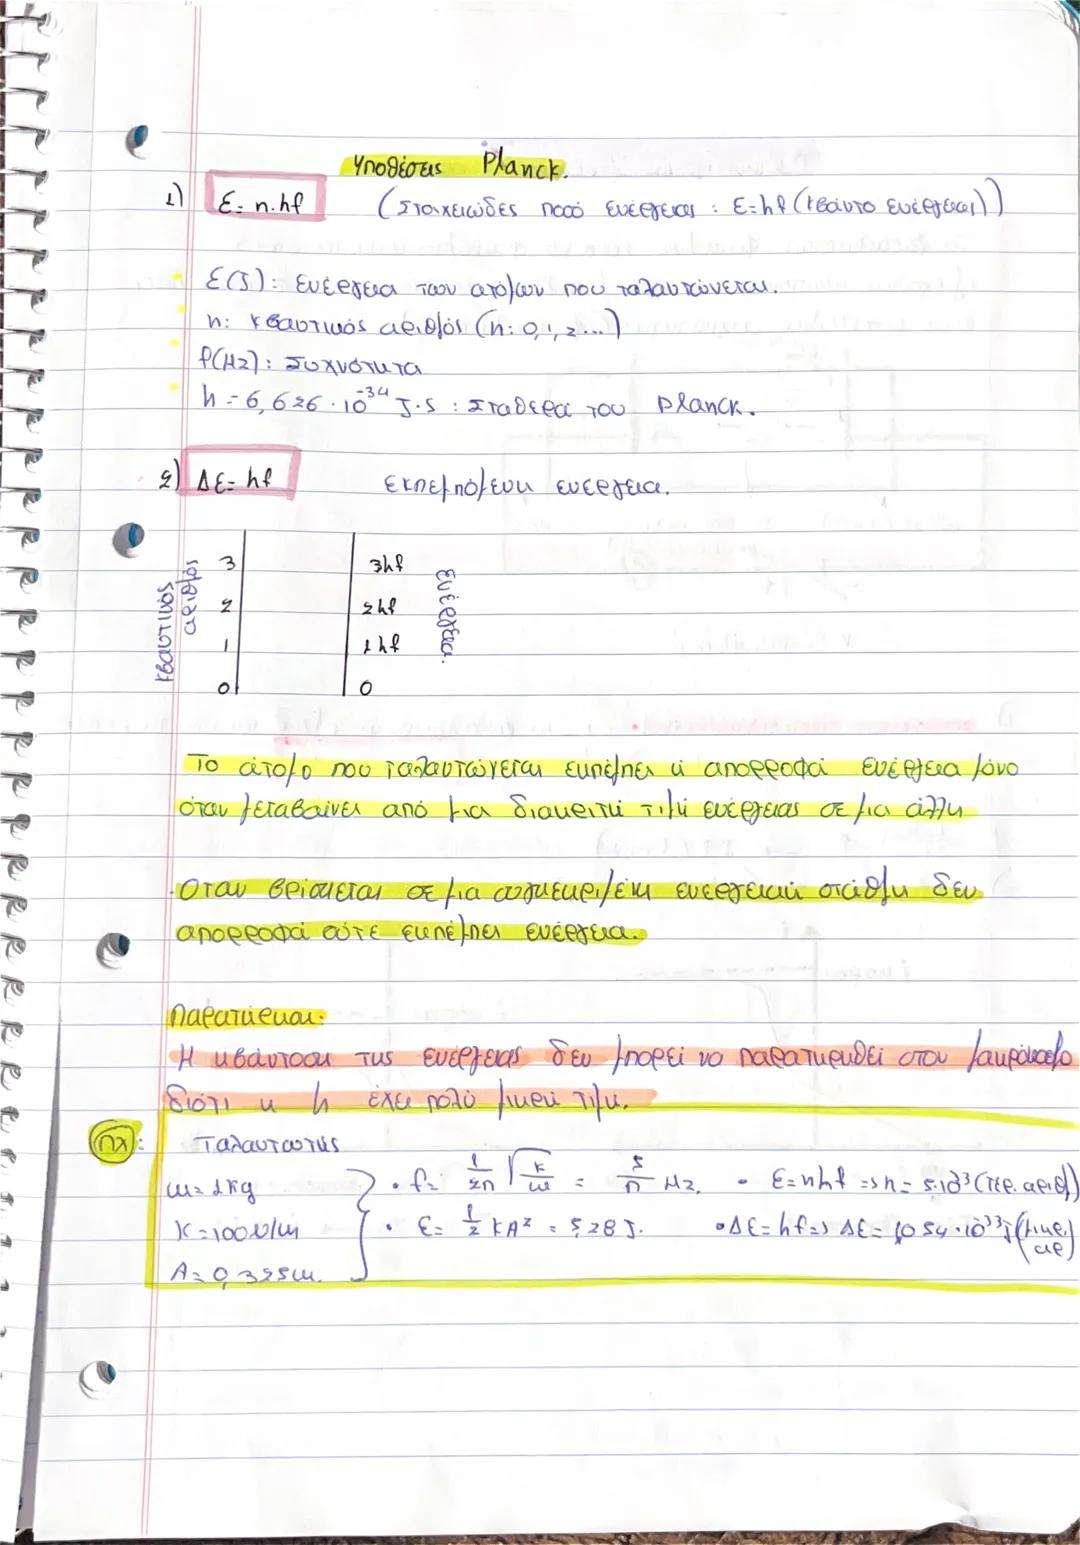 Υποθέσεις Planck.
1) Ε= n.hf (Στοιχειώδες ποσό ενέργειας : Ε=hf (κβάντο ενέργειας))
Ε(J): Ενέργεια των ατόμων που ταλαντώνεται.
n: κβαντικός αριθμός (n: 0,1,2...)
f(Hz): Συχνότητα
h = 6,626·10⁻³⁴ J·s : Σταθερά του Planck.
2) ΔΕ= hf Εκπεμπόμενη ενέργεια.
κβαντικός αριθμός
Ενέργεια.
3 3hf
2 2hf
1 1hf
0 0
Το άτομο που ταλαντώνεται εκπέμπει ή απορροφά ενέργεια μόνο
όταν μεταβαίνει από μια διακριτή τιμή ενέργειας σε μια άλλη
Όταν βρίσκεται σε μια συγκεκριμένη ενεργειακή στάθμη δεν
απορροφά ούτε εκπέμπει ενέργεια.
Παρατήρηση:
Η κβάντωση της ενέργειας δεν μπορεί να παρατηρηθεί στον μακρόκοσμο
διότι η h έχει πολύ μικρή τιμή.
πχ: Ταλαντωτής
m= 1kg • f= 1/2π √k/m = 5/π Hz. • Ε=nhf => n= 5·10³³ (τερ. αριθ)
K=100N/m • Ε= 1/2 KA² = 5,28 J. • ΔΕ= hf => ΔΕ= 10,54·10³³J (μικρ. αρ)
A= 0,325m.